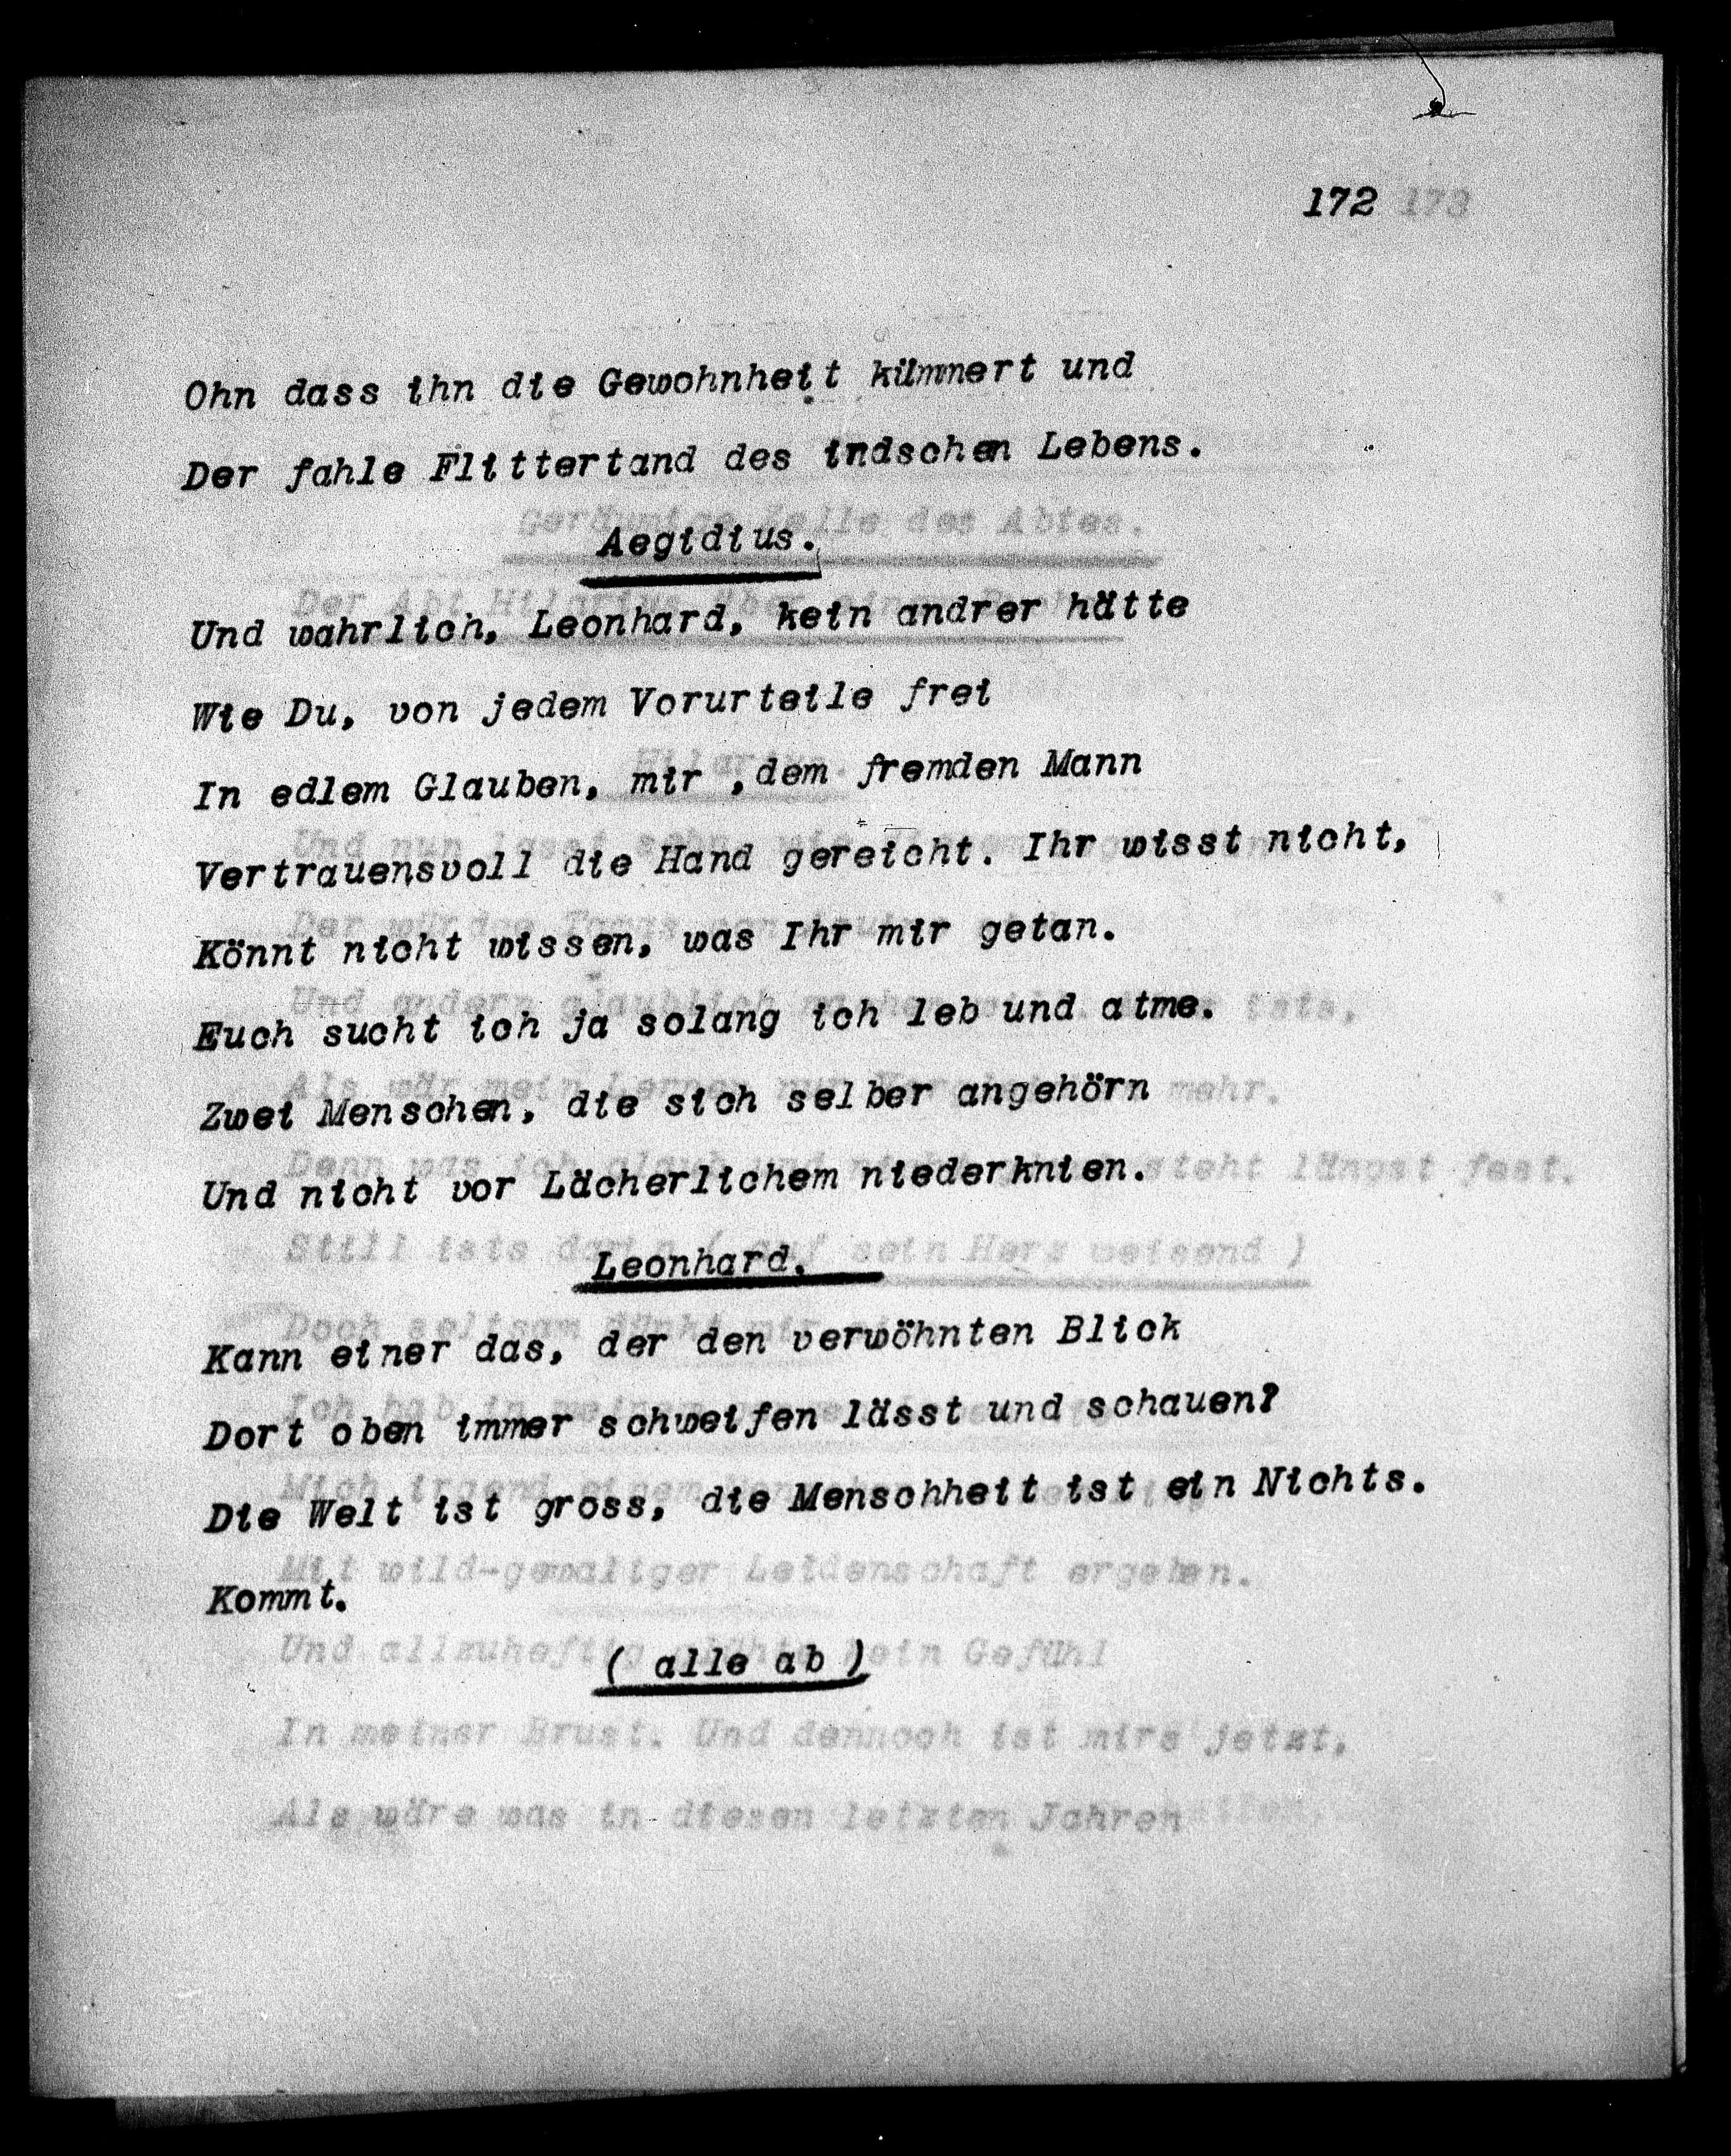 172 173
Ohn dass ihn die Gewohnheit kümmert und
Der fahle Flittertand des indschen Lebens.
Aegidius.
Und wahrlich, Leonhard, kein andrer hätte
Wie Du, von jedem Vorurteile frei
In edlem Glauben, mir ,dem fremden Mann
Vertrauensvoll die Hand gereicht. Ihr wisst nicht,
Könnt nicht wissen, was Ihr mir getan.
Euch sucht ich ja solang ich leb und atme.
Zwei Menschen, die sich selber angehörn
Und nicht vor Lächerlichem niederknien.
Leonhard.
Kann einer das, der den verwöhnten Blick
Dort oben immer schweifen lässt und schauen?
Die Welt ist gross, die Menschheit ist ein Nichts.
Mit wild-gewaltiger Leidenschaft ergeben.
Kommt.
( alle ab )
In meiner Brust. Und dennoch ist mirs jetzt,
Als wäre was in diesen letzten Jahren